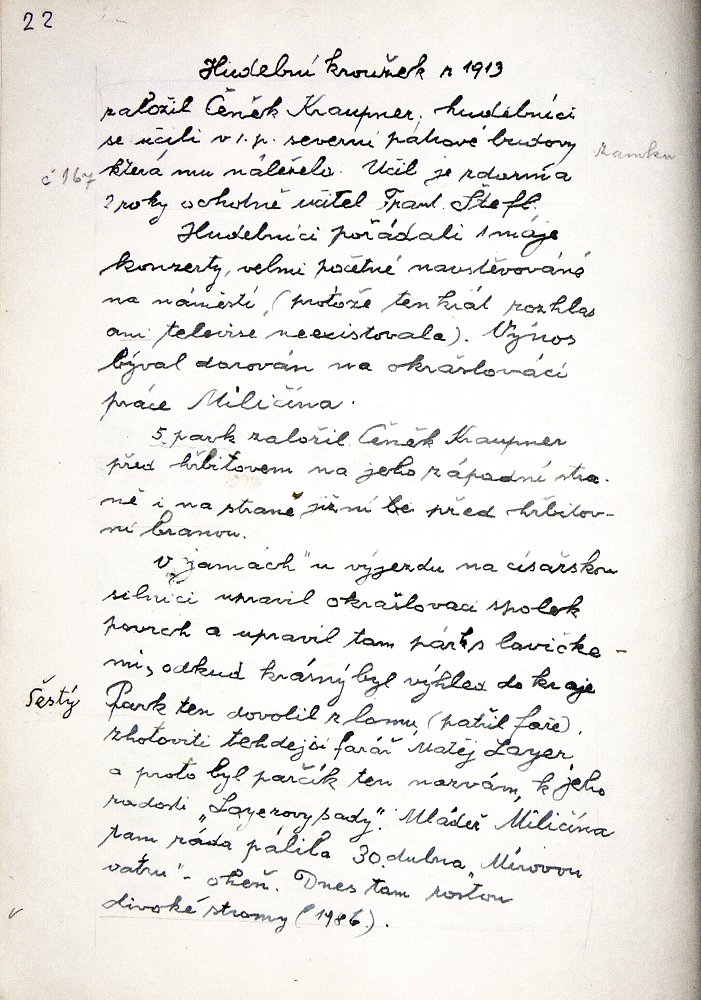 22
Hudební kroužek r 1913
založil Čeněk Kraupner, hudebníci
se učili v 1. p. severní páhové budovy
zamku
která mu náležela. Učil je zdarma
č 167
2 roky ochotně učitel Frant. Štefl.
Hudebníci pořádali 1 máje
konzerty, velmi početně navštěvované
na náměstí, (protože tenkrát rozhlas
ani televise neexistovala). Výnos
býval darován na okrašlovací
práce Miličína.
5. park založil Čeněk Kraupner
před hřbitovem na jeho západní stra-
ně i na straně jižní před hřbitov-
ní branou.
V „jamách" u výjezdu na císařskou
silnici upravil okrašlovací spolek
povrch a upravil tam párk s lavička-
mi, odkud krásný byl výhled do kraje
Šestý
Park ten dovolil z lomu, (patřil faře),
zhotoviti tehdejší farář Matěj Layer
a proto byl parčík ten nazván, k jeho
radosti „Layerovy sady". Mládež Miličína
tam ráda pálila 30. dubna „Mírovou
vatru" - oheň. Dnes tam rostou
divoké stromy (1986).